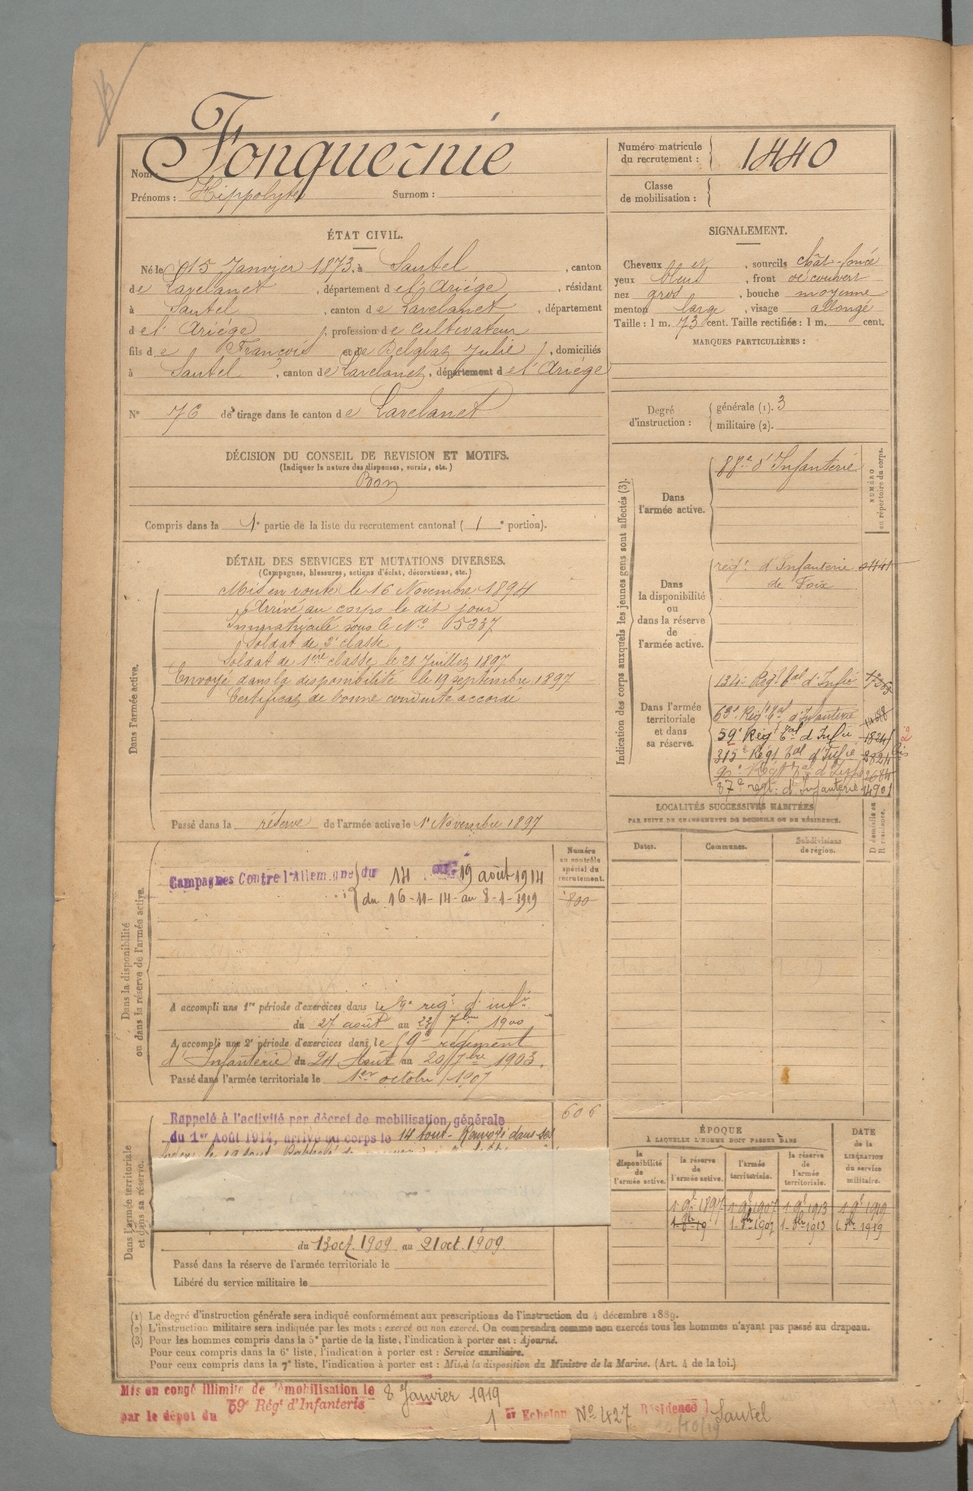 Nom : Fonquernie
Prénoms : Hippolyte Surnom :
Numéro matricule du recrutement : 1440
Classe de mobilisation :
ÉTAT CIVIL.
Né le 15 Janvier 1873, à Sautel, canton
de Lavelanet, département de l'Ariége, résidant
à Sautel, canton de Lavelanet, département
de l'Ariége, profession de Cultivateur
fils de François et de Julie, domiciliés
à Sautel, canton de Lavelanet, département de l'Ariége
N° 76 de tirage dans le canton de Lavelanet
SIGNALEMENT.
Cheveux et, sourcils chât. foncé
yeux bleus, front découvert
nez gros, bouche moyenne
menton large, visage allongé
Taille : 1 m. 73 cent. Taille rectifiée : 1 m. cent.
MARQUES PARTICULIÈRES :
Degré d'instruction : générale (1). 3
militaire (2).
DÉCISION DU CONSEIL DE REVISION ET MOTIFS.
(Indiquer la nature des dispenses, sursis, etc.)
Bon
Compris dans la 1e partie de la liste du recrutement cantonal (1e portion).
DÉTAIL DES SERVICES ET MUTATIONS DIVERSES.
(Campagnes, blessures, actions d'éclat, décorations, etc.)
Dans l'armée active.
Mis en route le 16 Novembre 1894
Arrivé au corps le dit jour
Immatriculé sous le No 5337
Soldat de 2e classe
Soldat de 1ère classe le 21 Juillet 1897
Envoyé dans la disponibilité le 19 septembre 1897
Certificat de bonne conduite accordé
Passé dans la réserve de l'armée active le 1er Novembre 1897
Indication des corps auxquels les jeunes gens sont affectés (3).
NUMÉRO au répertoire du corps.
Dans l'armée active.
88e d'Infanterie
Dans la disponibilité ou dans la réserve de l'armée active.
régt. d'Infanterie
de Foix
Dans l'armée territoriale et dans sa réserve.
134e Régt tal d'Infie
63e Régt tal d'Infanterie
59e Régt tal d'Infie 1824
315e Régt tal d'Infie 2824
87e régt. d'Infanterie 4901
LOCALITÉS SUCCESSIVES HABITÉES
PAR SUITE DE CHANGEMENTS DE DOMICILE OU DE RÉSIDENCE.
Dates. Communes. Subdivisions de région. D domicile ou R résidence.
Dans la disponibilité ou dans la réserve de l'armée active.
Numéro au contrôle spécial du recrutement.
800
Campagnes Contre l'Allemagne du 14 au 19 août 1914
du 16-11-14 au 8-1-1919
A accompli une 1re période d'exercices dans le 59e régt d'infie
du 27 août au 23 7bre 1900
A accompli une 2e période d'exercices dans le 59e régiment
d'Infanterie du 24 Aout au 20 7bre 1903.
Passé dans l'armée territoriale le 1er octobre 1907
Dans l'armée territoriale et dans sa réserve.
606
Rappelé à l'activité par décret de mobilisation générale
du 1er Août 1914, arrivé au corps le 14 août. Renvoyé dans ses
du 13 oct. 1909 au 21 oct. 1909.
Passé dans la réserve de l'armée territoriale le
Libéré du service militaire le
ÉPOQUE
À LAQUELLE L'HOMME DOIT PASSER DANS
DATE de la LIBÉRATION du service militaire.
la disponibilité de l'armée active. la réserve de l'armée active. l'armée territoriale. la réserve de l'armée territoriale.
1 9bre 1897 1 9bre 1907 1 9bre 1913 1 9bre 1919
1 8bre 1907 1 8bre 1913 1 8bre 1919
(1) Le degré d'instruction générale sera indiqué conformément aux prescriptions de l'instruction du 4 décembre 1889.
(2) L'instruction militaire sera indiquée par les mots : exercé ou non exercé. On comprendra comme non exercés tous les hommes n'ayant pas passé au drapeau.
(3) Pour les hommes compris dans la 5e partie de la liste, l'indication à porter est : Ajourné.
Pour ceux compris dans la 6e liste, l'indication à porter est : Service auxiliaire.
Pour ceux compris dans la 7e liste, l'indication à porter est : Mis à la disposition du Ministre de la Marine. (Art. 4 de la loi.)
Mis en congé illimité de démobilisation le 8 Janvier 1919
par le dépôt du 59e Régt d'Infanterie
1er Echelon No 427 Résidence Sautel